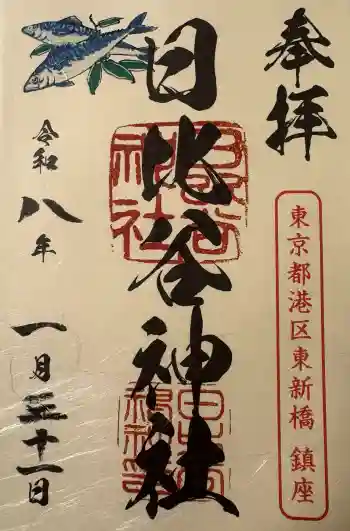 奉拝
東京都港区東新橋 鎮座
日比谷神社
日比谷神社
令和八年
一月三十一日